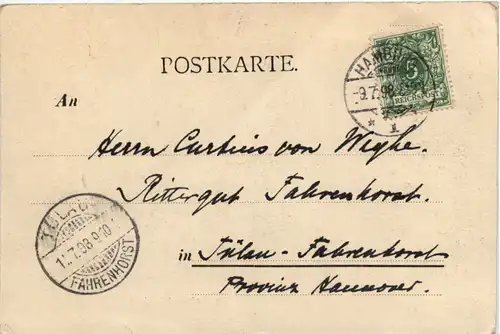 POSTKARTE.
HAMBURG
9.7.98
5
REICHSPOST
An
Herrn Curtius von Weyhe.
Rittergut Fahrenhorst.
in Tülau-Fahrenhorst
Provinz Hannover.
TÜLAU
7.98
FAHRENHORST